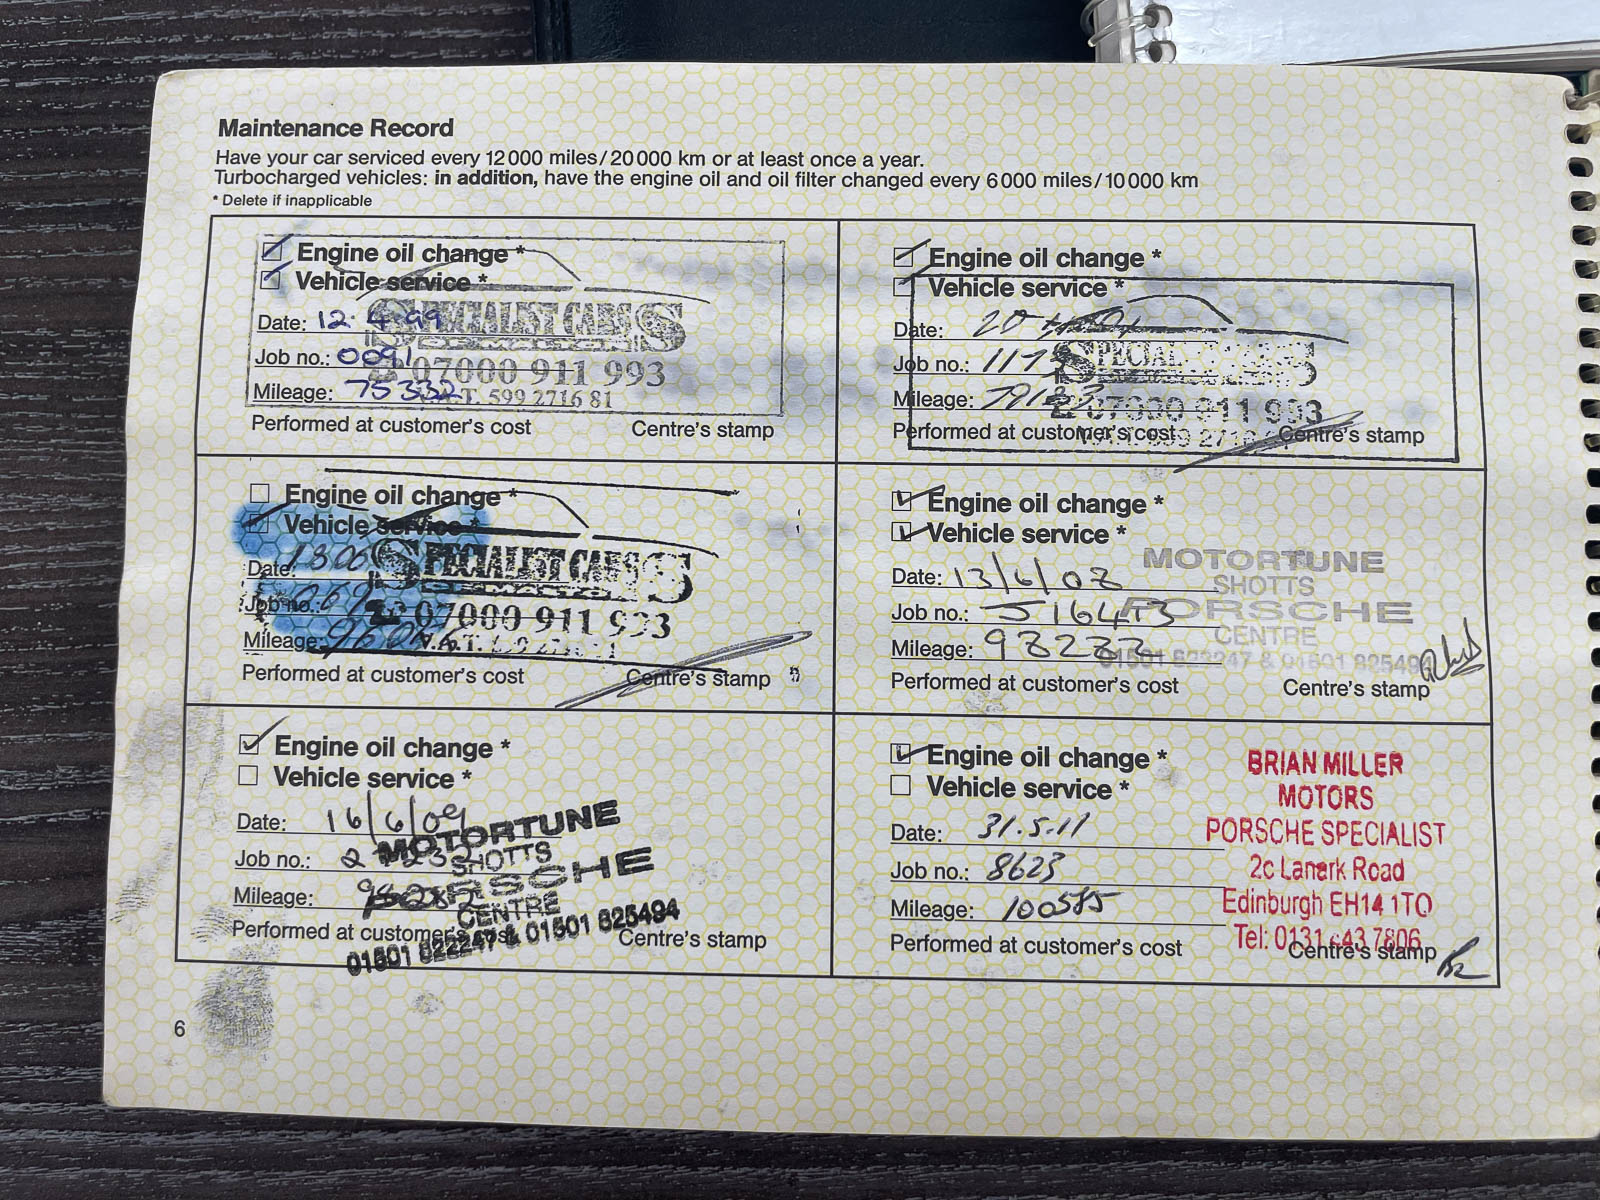 Maintenance Record
Have your car serviced every 12 000 miles/20 000 km or at least once a year.
Turbocharged vehicles: in addition, have the engine oil and oil filter changed every 6 000 miles/10 000 km
* Delete if inapplicable
Engine oil change *
Vehicle service *
Date: 12.4.99
Job no.: 0091
Mileage: 75332
SPECIALIST CARS
07000 911 993
V.A.T. 599 2716 81
Performed at customer's cost
Centre's stamp
Engine oil change *
Vehicle service *
Date: 20
Job no.:
Mileage:
SPECIALIST CARS
07000 911 993
Performed at customer's cost
Centre's stamp
Engine oil change *
Vehicle service *
Date:
Job no.:
Mileage:
SPECIALIST CARS
07000 911 993
V.A.T.
Performed at customer's cost
Centre's stamp
Engine oil change *
Vehicle service *
Date: 13/6/08
Job no.: 516443
Mileage: 98283
MOTORTUNE
SHOTTS
PORSCHE
CENTRE
01501 822247 & 01501 825494
Performed at customer's cost
Centre's stamp
Engine oil change *
Vehicle service *
Date: 16/6/09
Job no.:
Mileage:
MOTORTUNE
SHOTTS
PORSCHE
CENTRE
01501 822247 & 01501 825494
Performed at customer's cost
Centre's stamp
Engine oil change *
Vehicle service *
Date: 31.5.11
Job no.: 8623
Mileage: 100585
BRIAN MILLER
MOTORS
PORSCHE SPECIALIST
2c Lanark Road
Edinburgh EH14 1TQ
Tel: 0131 443 7806
Performed at customer's cost
Centre's stamp
6